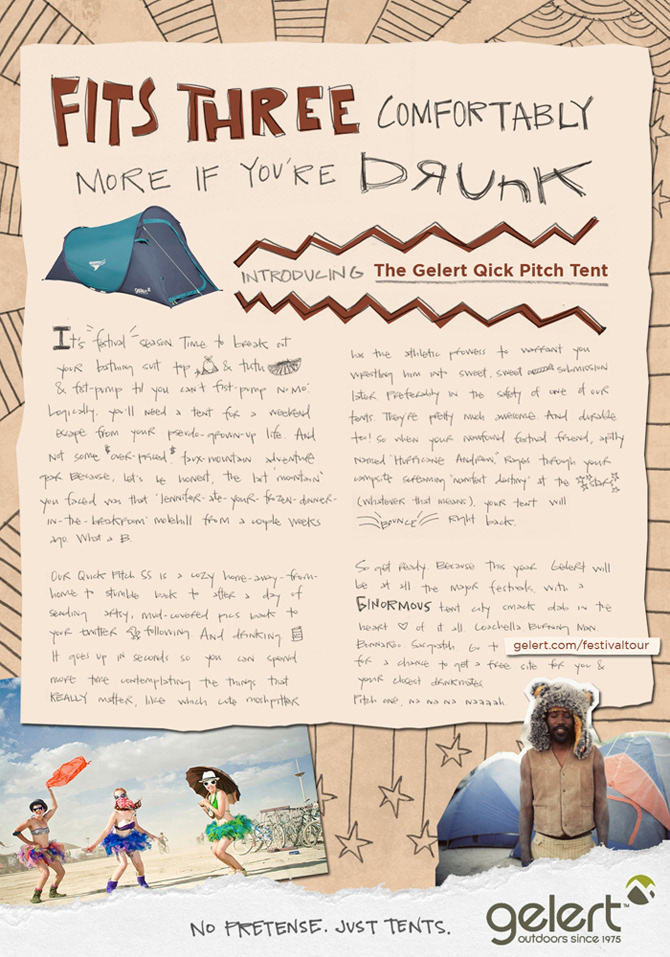 FITS THREE COMFORTABLY
MORE IF YOU'RE DRUNK
INTRODUCING The Gelert Qick Pitch Tent
It's "festival" season. Time to break out
your bathing suit top & tutu
& fist-pump til you can't fist-pump no mo'.
Logically, you'll need a tent for a weekend
escape from your pseudo-grown-up life. And
not some "over-priced" faux-mountain adventure
gear. Because, let's be honest, the last "mountain"
you faced was that 'Jennifer-ate-your-frozen-dinner-
in-the-breakroom' molehill from a couple weeks
ago. What a B.
Our Quick Pitch SS is a cozy home-away-from-
home to stumble back to after a day of
sending artsy, mud-covered pics back to
your twitter following. And drinking
It goes up in seconds so you can spend
more time contemplating the things that
REALLY matter, like which cute moshpitter
has the athletic prowess to warrant you
wrestling him into sweet, sweet submission
later. Preferably in the safety of one of our
tents. They're pretty much awesome. And durable
too! So when your newfound festival friend, aptly
named "Hurricane Andrew," Rages through your
campsite screaming "manifest destiny" at the stars
(whatever that means), your tent will
BOUNCE Right back.
So get ready. Because this year Gelert will
be at all the major festivals with a
GINORMOUS tent city smack dab in the
heart of it all. Coachella Burning Man
Bonnaroo Sasquatch. Go to gelert.com/festivaltour
for a chance to get a free site for you &
your closest drinkmates.
Pitch one, na na na naaaah.
NO PRETENSE. JUST TENTS.
gelert™
outdoors since 1975